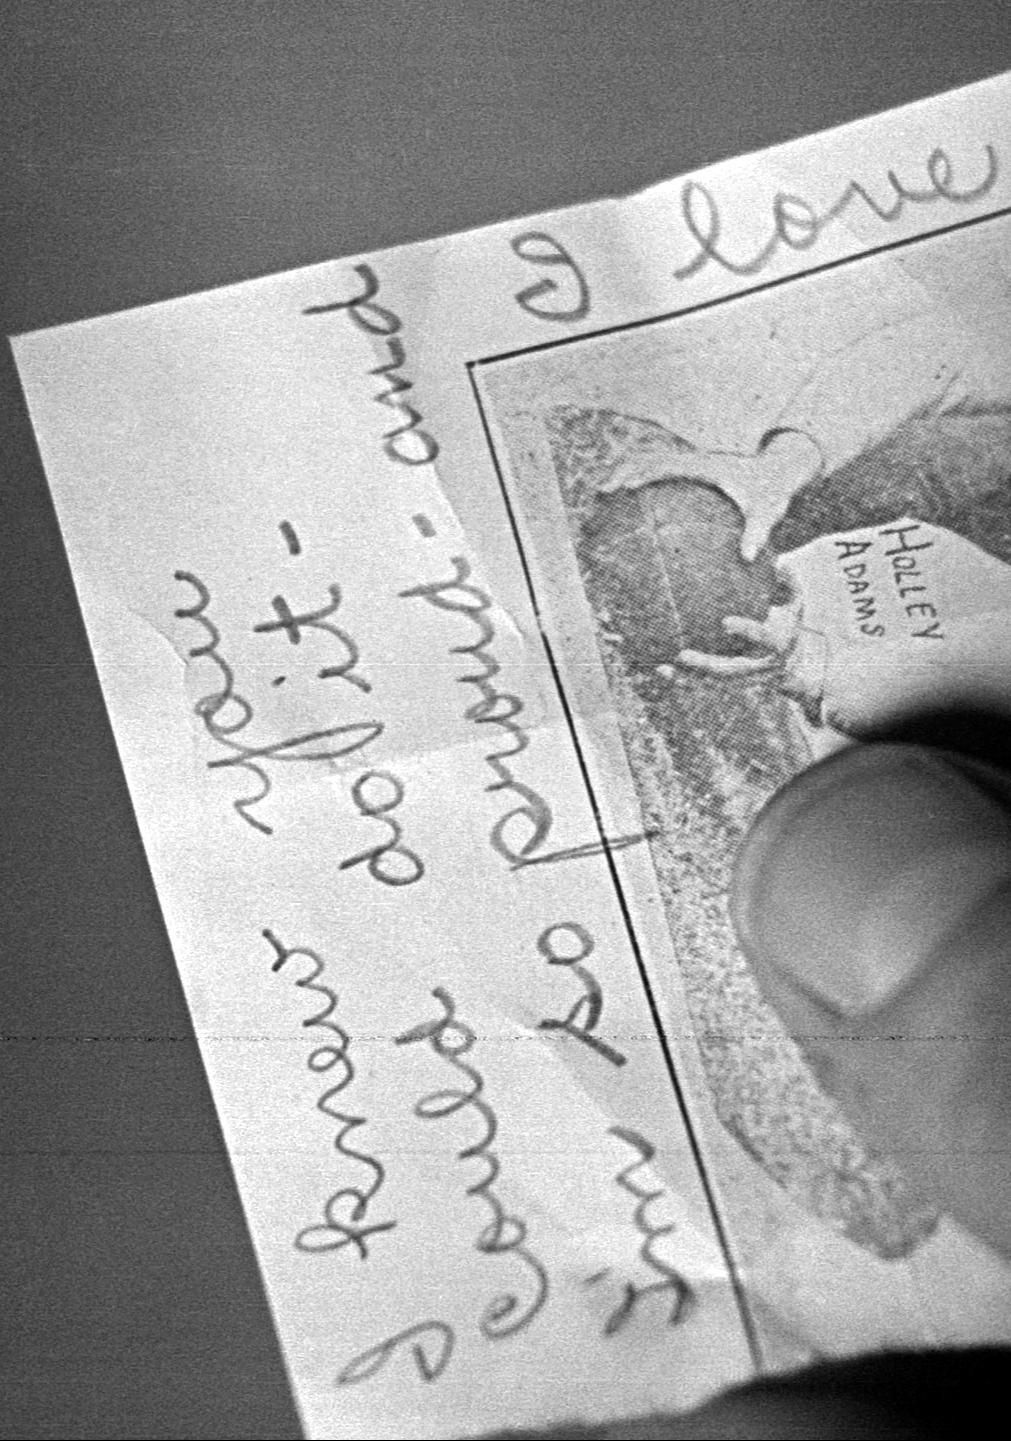 I knew you
Could do it -
I'm so proud - and
I love
HOLLEY
ADAMS